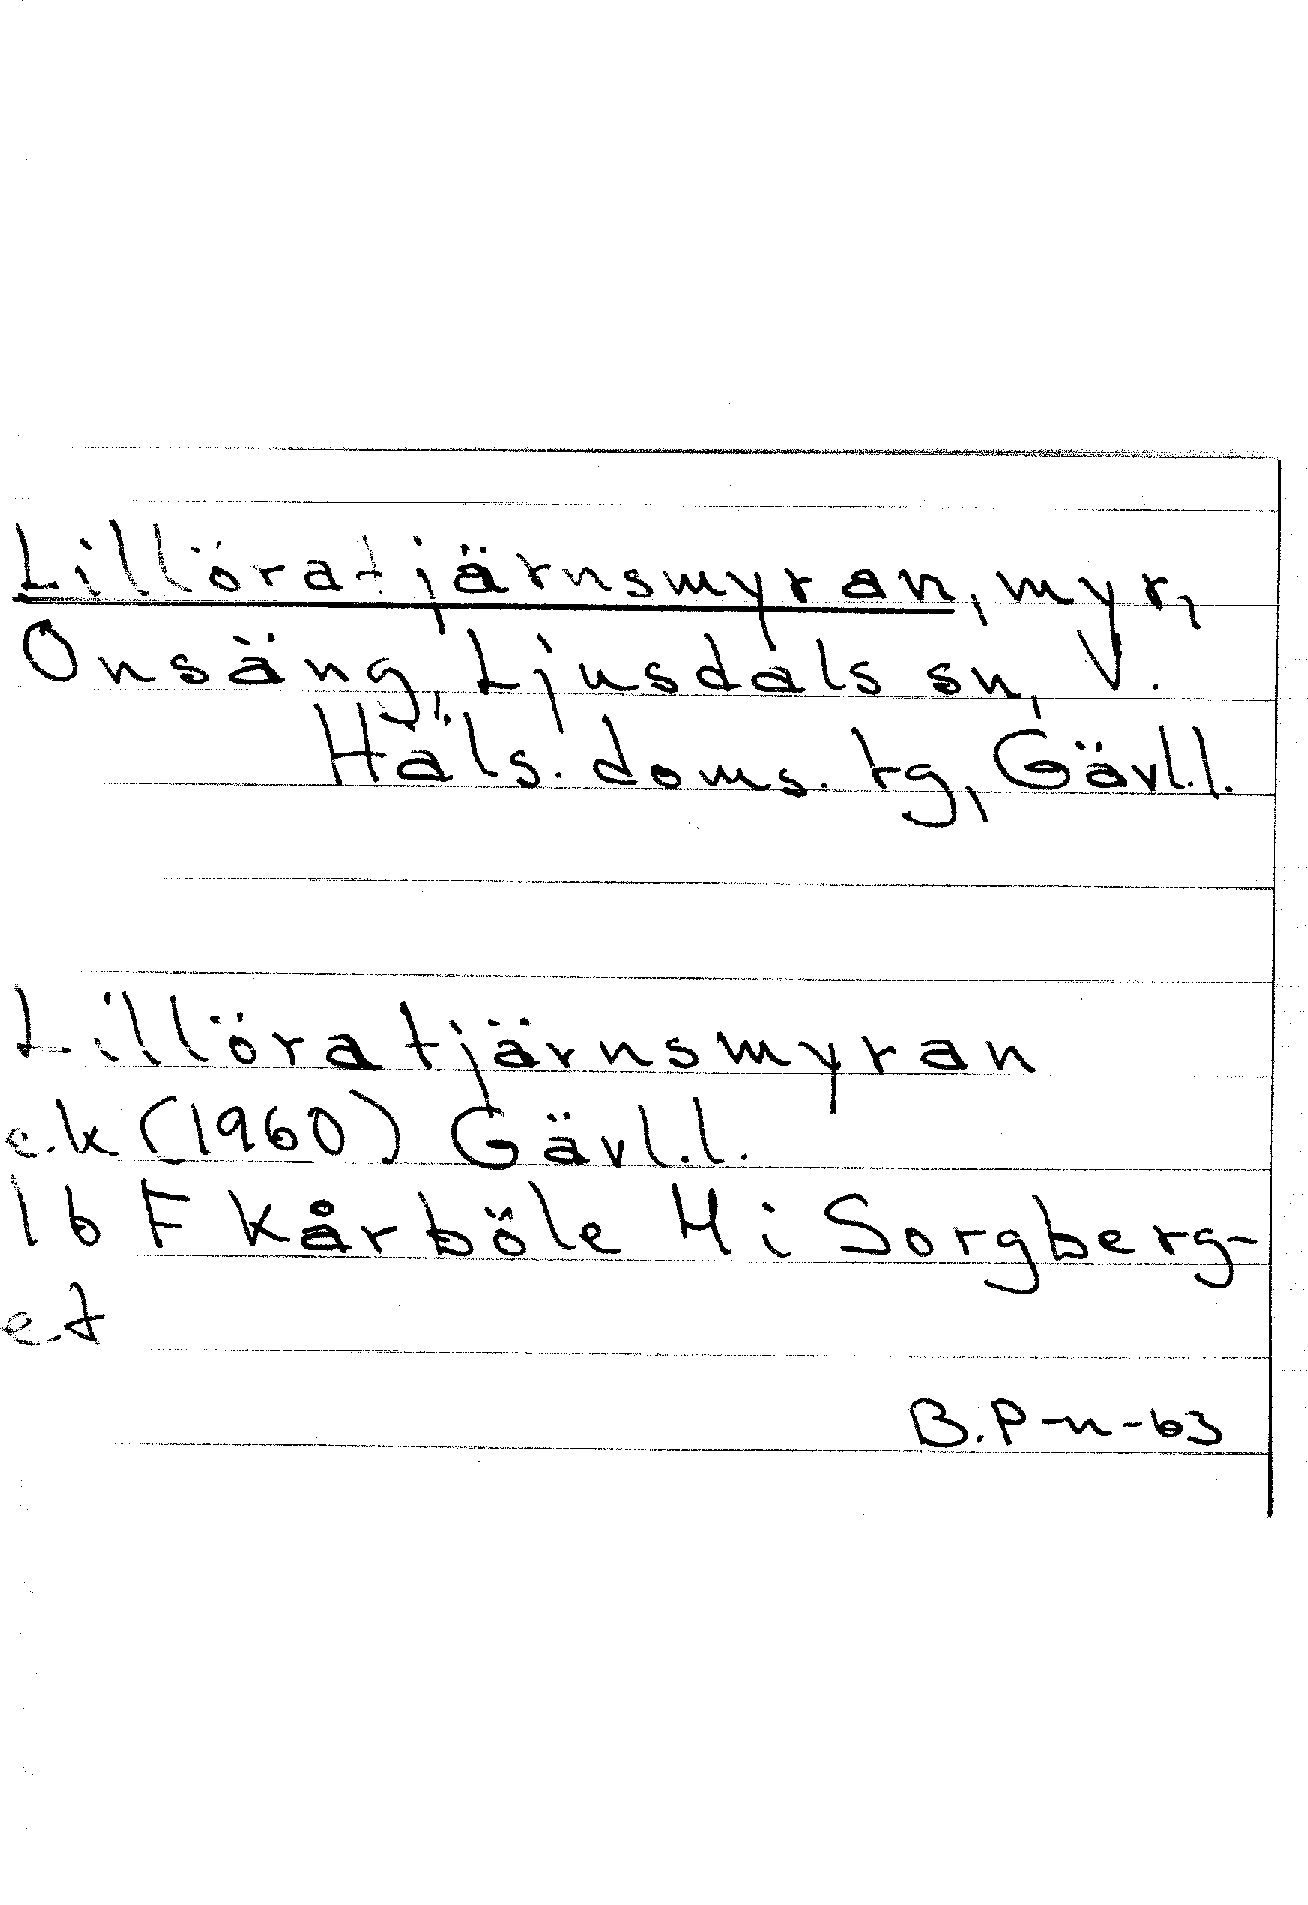 Lillöratjärnsmyran, myr,
Onsäng, Ljusdals sn, V.
Häls. doms. tg, Gävl.l.
Lillöratjärnsmyran
e.k (1960) Gävl.l.
16 F Kårböle H i Sorgberg-
et
B.P-n-63